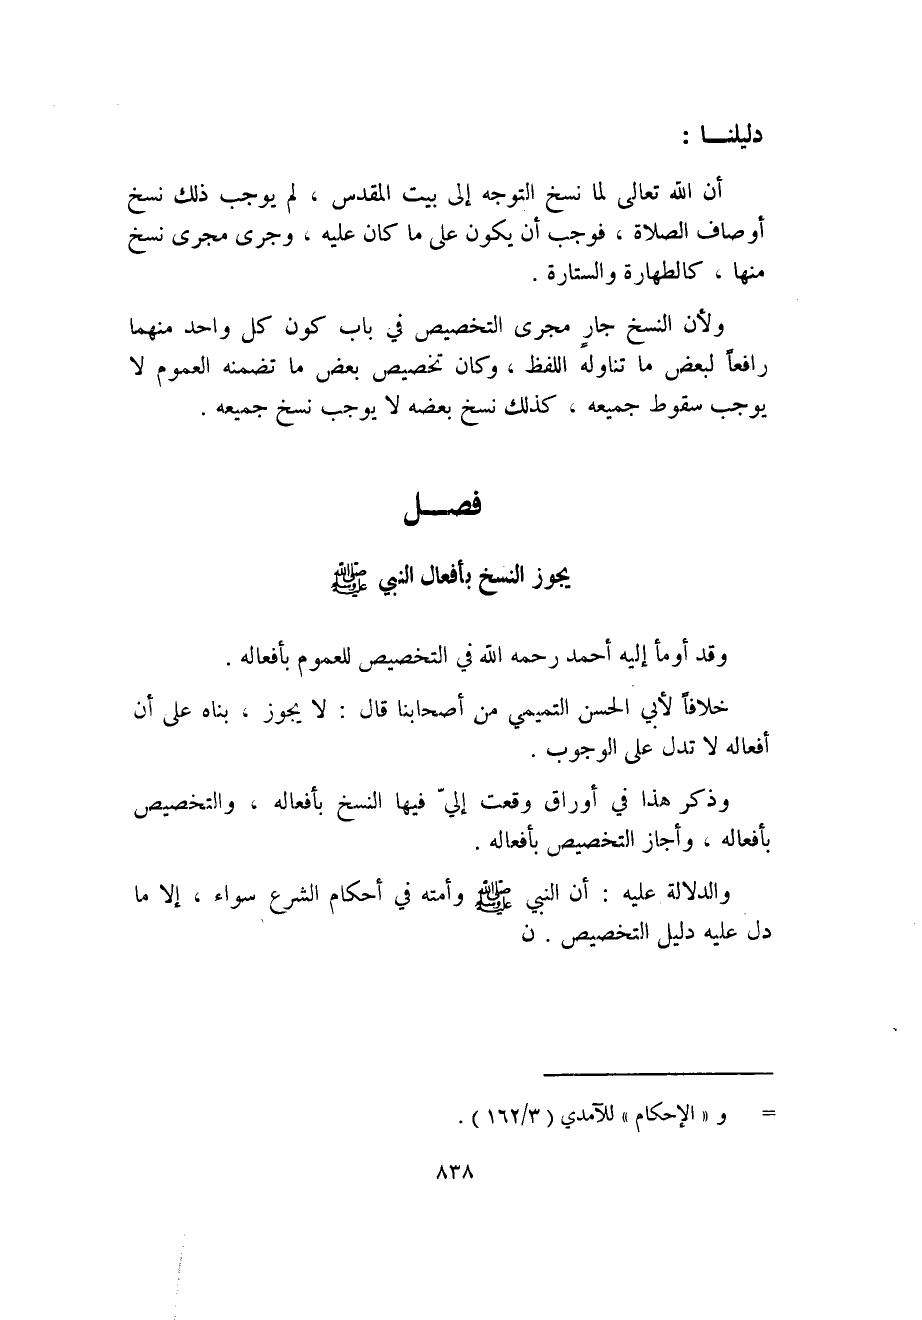 دليلنـــا :
أن الله تعالى لما نسخ التوجه إلى بيت المقدس ، لم يوجب ذلك نسخ
أوصاف الصلاة ، فوجب أن يكون على ما كان عليه ، وجرى مجرى نسخ
منها ، كالطهارة والستارة .
ولأن النسخ جارٍ مجرى التخصيص في باب كون كل واحد منهما
رافعاً لبعض ما تناوله اللفظ ، وكان تخصيص بعض ما تضمنه العموم لا
يوجب سقوط جميعه ، كذلك نسخ بعضه لا يوجب نسخ جميعه .
فصـــل
يجوز النسخ بأفعال النبي ﷺ
وقد أومأ إليه أحمد رحمه الله في التخصيص للعموم بأفعاله .
خلافاً لأبي الحسن التميمي من أصحابنا قال : لا يجوز ، بناه على أن
أفعاله لا تدل على الوجوب .
وذكر هذا في أوراق وقعت إليّ فيها النسخ بأفعاله ، والتخصيص
بأفعاله ، وأجاز التخصيص بأفعاله .
والدلالة عليه : أن النبي ﷺ وأمته في أحكام الشرع سواء ، إلا ما
دل عليه دليل التخصيص . ن
= و « الإحكام » للآمدي ( ١٦٢/٣ ) .
٨٣٨